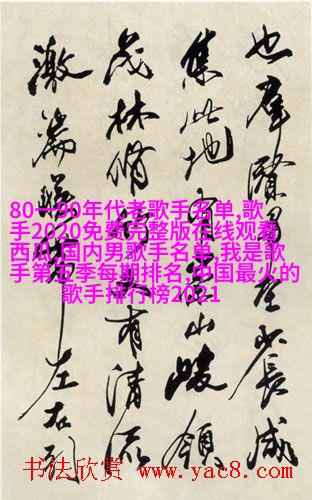 也群賢畢至少長咸
集此地有崇山峻領
茂林脩竹又有清流
激湍暎帶左右引
80一90年代老歌手名单,歌
手2020免费完整版在线观看
西瓜,国内男歌手名单,我是歌
手第五季每期排名,中国最火的
歌手排行榜2021
书法欣赏 www.yac8.com